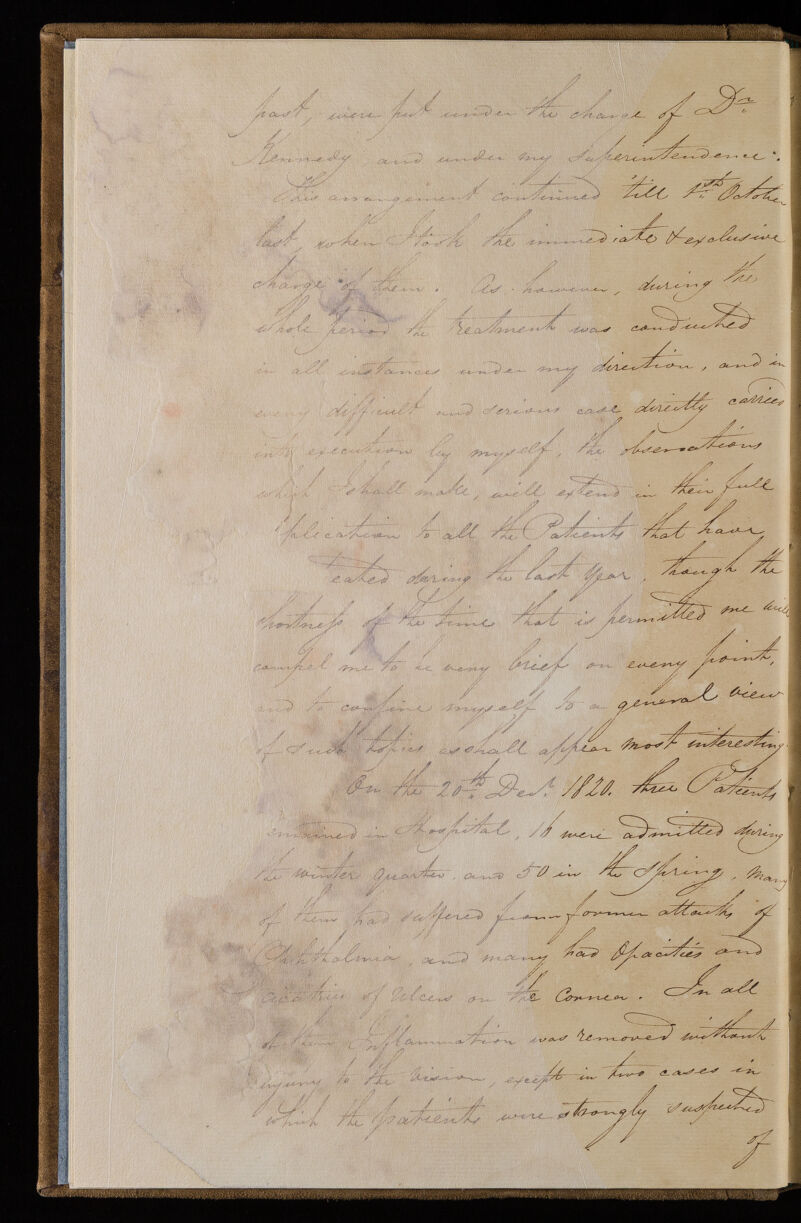 past, were put under the charge of Dr.
Kennedy, and under my superintendence.
This arrangement continued 'till 1st October
last, when I took the immediate & exclusive
charge of them. As however, during the
whole period the treatment was conducted
in all instances under my direction, and in
every difficult and serious case directly carried
into execution by myself, the observations
which I shall make, will extend in their full
plication to all the Patients that have
eated during the last Year, though the
shortness of the time that is permitted me will
compel me to be very brief on every point,
and to confine myself to a general view
of such topics as shall appear most interesting.
On the 20th Decr. 1820. three Patients
remained in Hospital, 16 were admitted during
the winter quarter and 50 in the Spring, many
of them had suffered from former attacks of
Ophthalmia, and many had Opacities and
cicatrices of Ulcers on the Cornea. In all
of them Inflammation was removed without
injury to the vision, except in two cases in
which the patients were strongly suspected
of